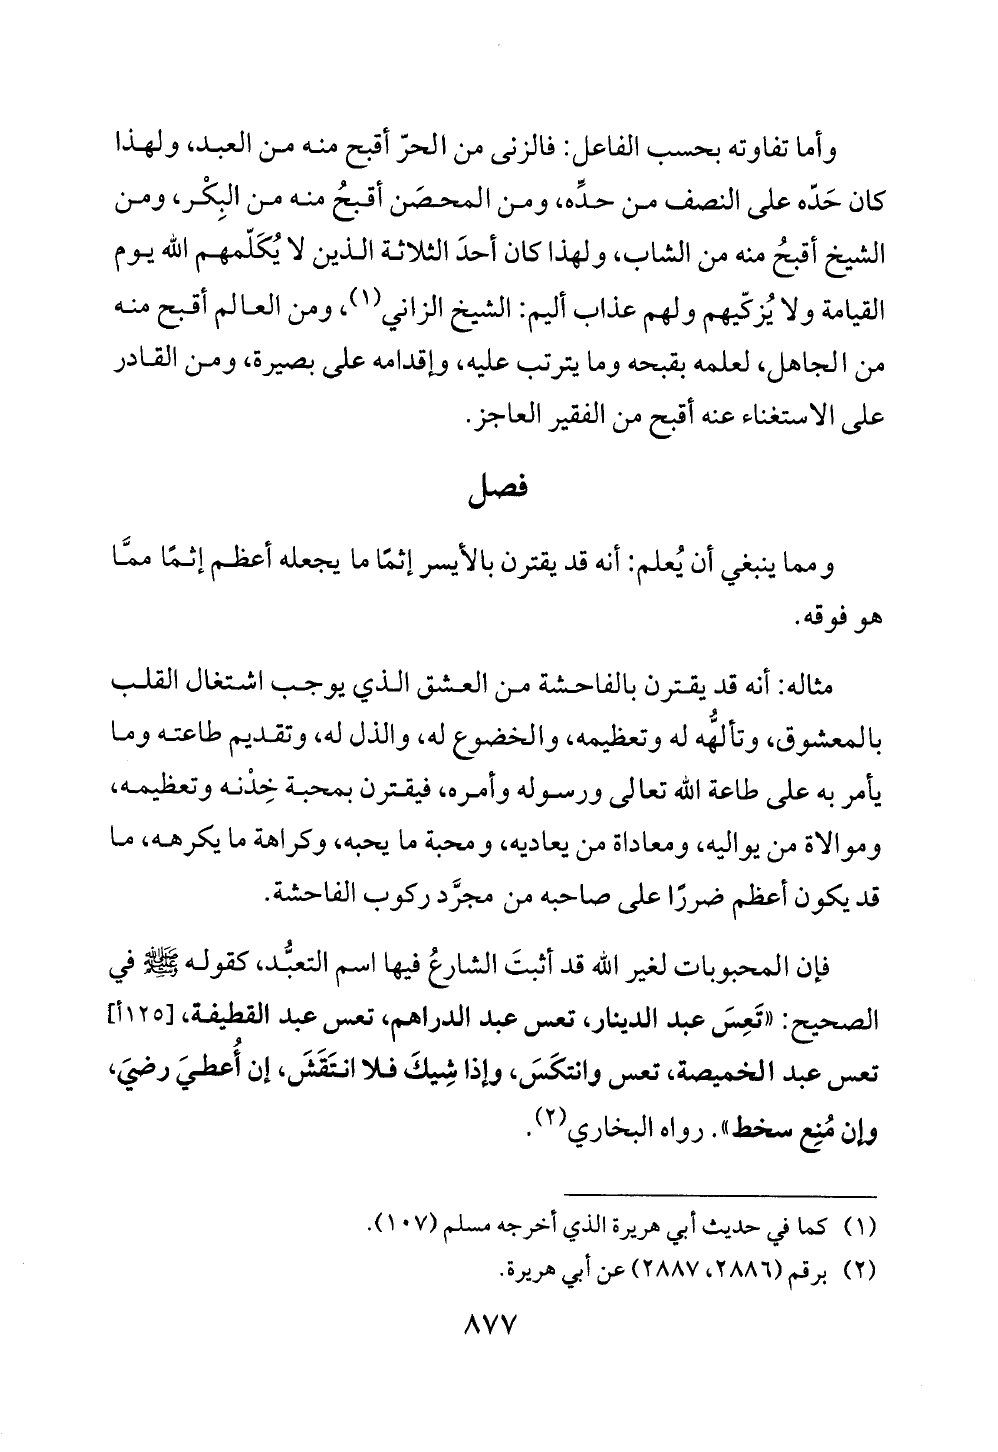 وأما تفاوته بحسب الفاعل: فالزنى من الحرّ أقبح منه من العبد، ولهذا
كان حَدّه على النصف من حدِّه، ومن المحصَن أقبحُ منه من البِكْر، ومن
الشيخ أقبحُ منه من الشاب، ولهذا كان أحدَ الثلاثة الذين لا يُكَلّمهم الله يوم
القيامة ولا يُزكّيهم ولهم عذاب أليم: الشيخ الزاني(١)، ومن العالم أقبح منه
من الجاهل، لعلمه بقبحه وما يترتب عليه، وإقدامه على بصيرة، ومن القادر
على الاستغناء عنه أقبح من الفقير العاجز.
فصل
ومما ينبغي أن يُعلم: أنه قد يقترن بالأيسر إثمًا ما يجعله أعظم إثمًا ممَّا
هو فوقه.
مثاله: أنه قد يقترن بالفاحشة من العشق الذي يوجب اشتغال القلب
بالمعشوق، وتألُّهه له وتعظيمه، والخضوع له، والذل له، وتقديم طاعته وما
يأمر به على طاعة الله تعالى ورسوله وأمره، فيقترن بمحبة خِدْنه وتعظيمه،
وموالاة من يواليه، ومعاداة من يعاديه، ومحبة ما يحبه، وكراهة ما يكرهه، ما
قد يكون أعظم ضررًا على صاحبه من مجرَّد ركوب الفاحشة.
فإن المحبوبات لغير الله قد أثبتَ الشارعُ فيها اسم التعبُّد، كقوله ﷺ في
الصحيح: «تَعِسَ عبد الدينار، تعس عبد الدراهم، تعس عبد القطيفة، [١٢٥أ]
تعس عبد الخميصة، تعس وانتكَسَ، وإذا شِيكَ فلا انتَقَشَ، إن أُعطيَ رضيَ،
وإن مُنِع سخط». رواه البخاري(٢).
(١) كما في حديث أبي هريرة الذي أخرجه مسلم (١٠٧).
(٢) برقم (٢٨٨٦، ٢٨٨٧) عن أبي هريرة.
٨٧٧